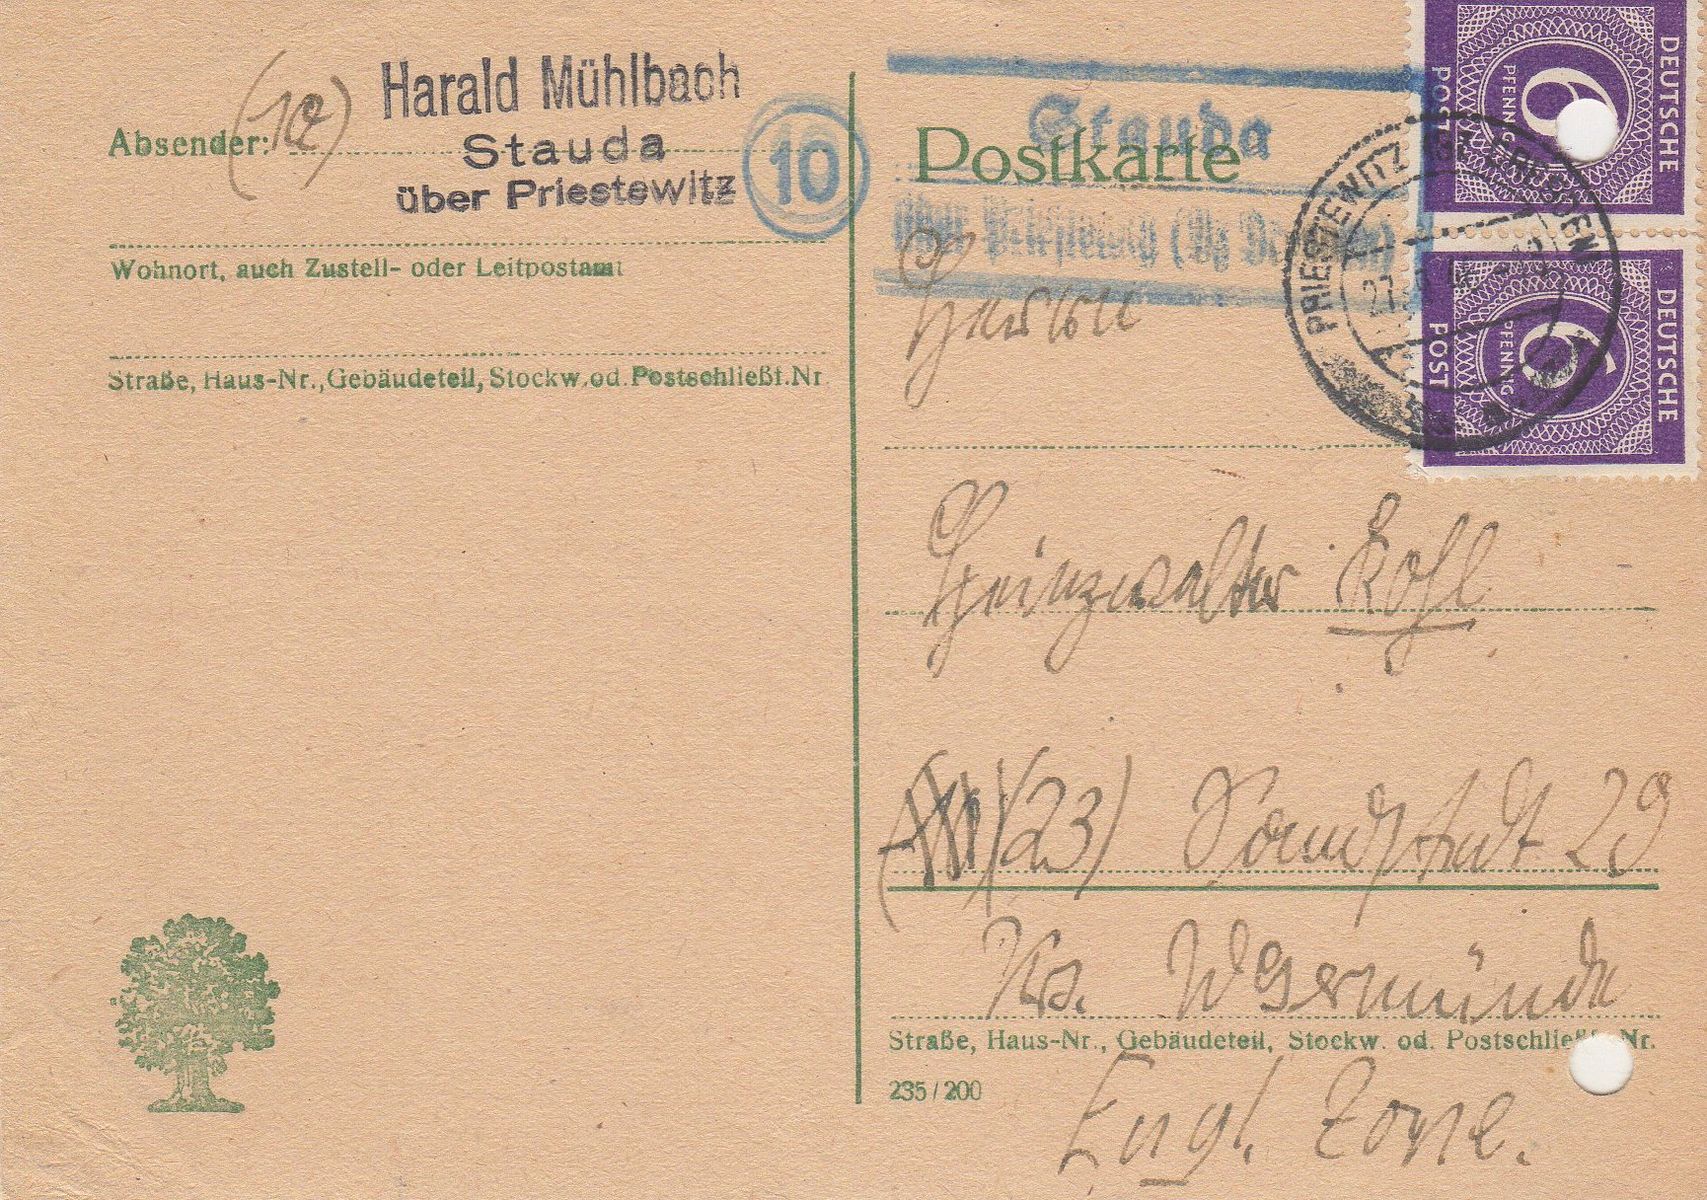 Absender: (10)
Harald Mühlbach
Stauda
über Priestewitz
10
Wohnort, auch Zustell- oder Leitpostamt
Straße, Haus-Nr., Gebäudeteil, Stockw. od. Postschließf. Nr.
Postkarte
Stauda
über Priestewitz (Bz Dresden)
DEUTSCHE POST
6 PFENNIG
DEUTSCHE POST
6 PFENNIG
PRIESTEWITZ
27
Herrn
Heinzwalter Kohl
(23) Sandstedt 29
Krs. Wesermünde
Straße, Haus-Nr., Gebäudeteil, Stockw. od. Postschließf. Nr.
235/200
Engl. Zone.